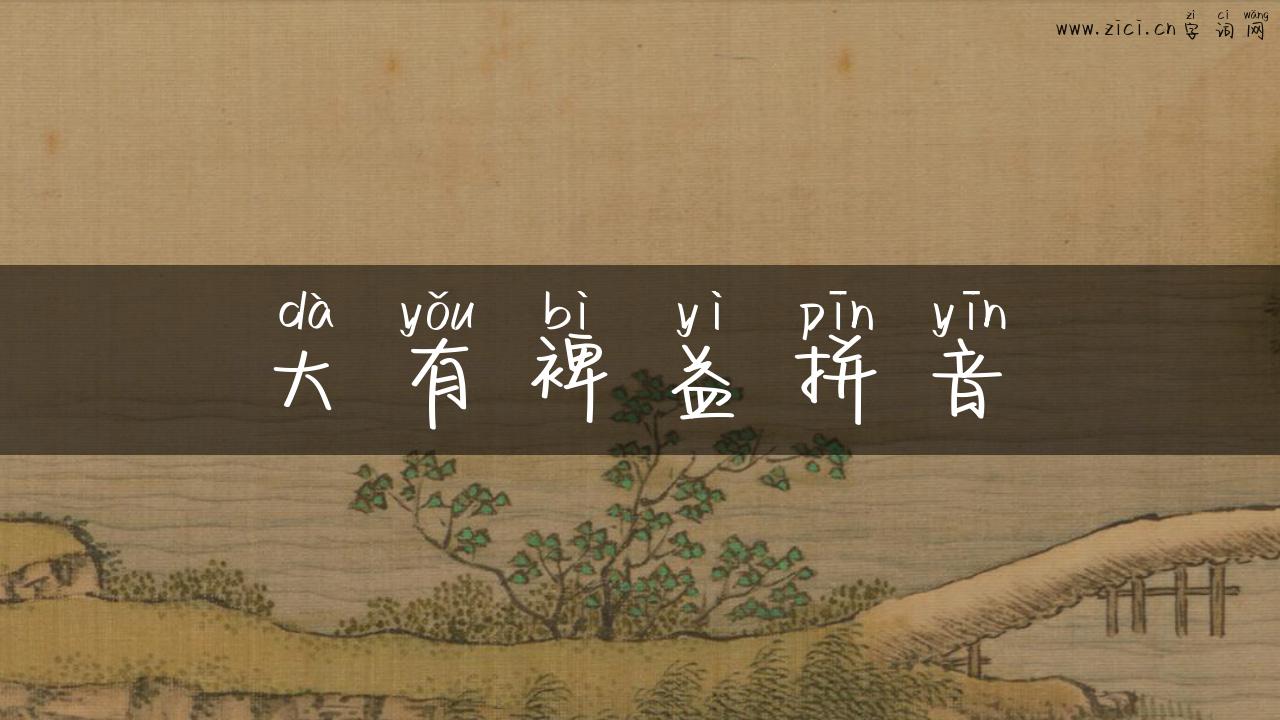 zì cí wǎng
www.zici.cn 字 词 网
dà yǒu bì yì pīn yīn
大 有 裨 益 拼 音